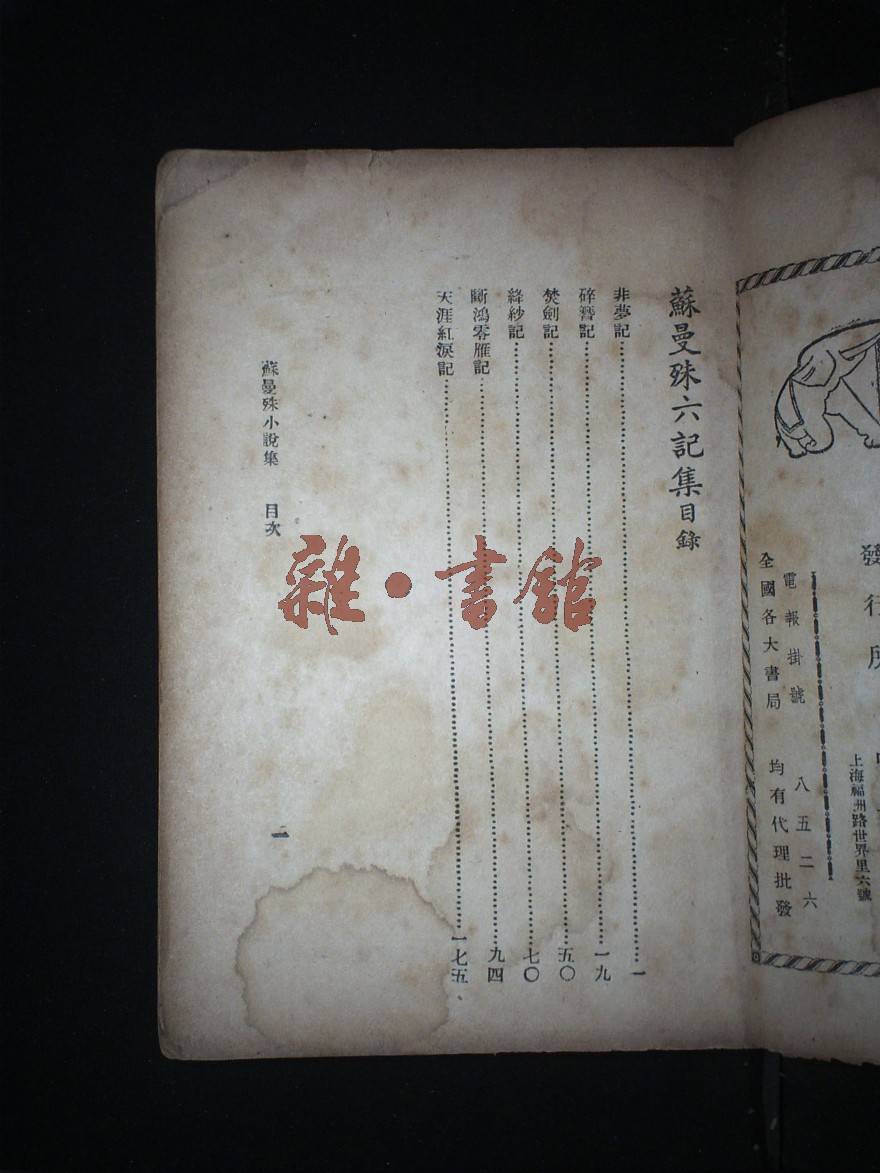 蘇曼殊六記集目錄
非夢記……一
碎簪記……一九
焚劍記……五〇
絳紗記……七〇
斷鴻零雁記……九四
天涯紅淚記……一七五
蘇曼殊小說集 目次
一
雜·書館
發行所
上海福州路世界里六號
電報掛號 八五二六
全國各大書局 均有代理批發